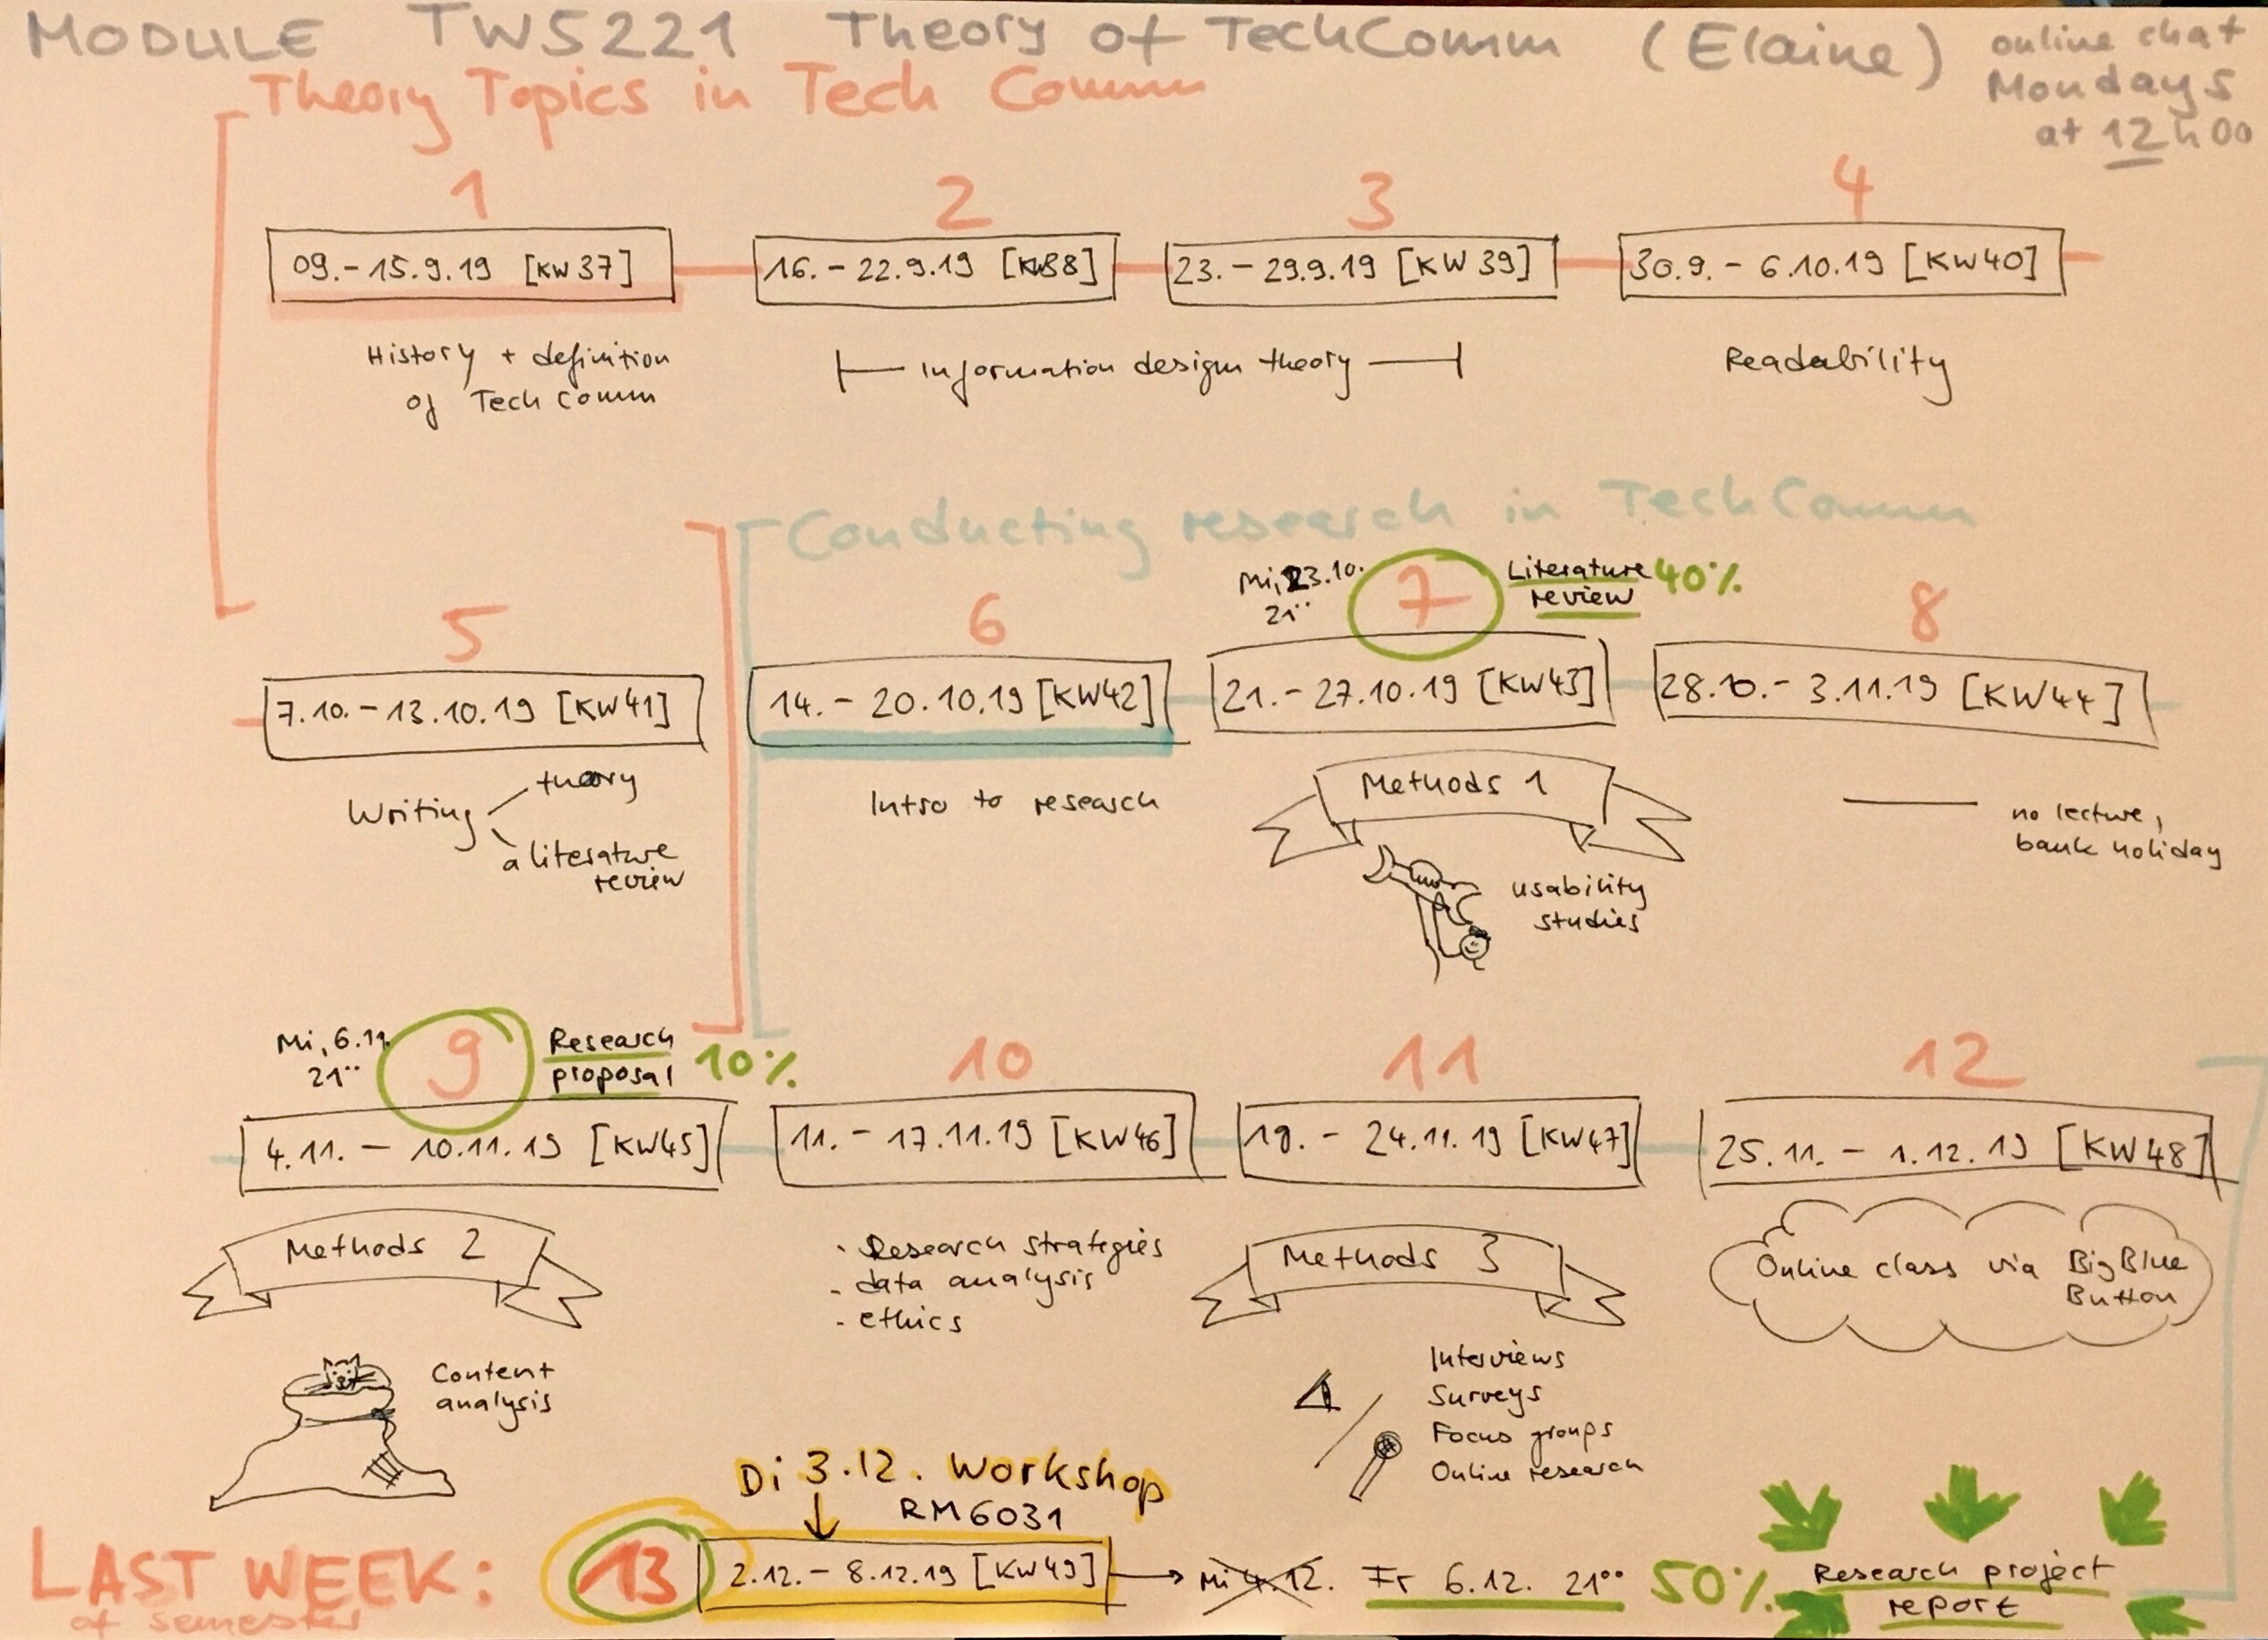 MODULE TW5221 Theory of TechComm (Elaine)
online chat
Mondays
at 12h00
Theory Topics in Tech Comm
1
2
3
4
09.-15.9.19 [KW37]
16.-22.9.19 [KW38]
23.-29.9.19 [KW39]
30.9.-6.10.19 [KW40]
History + definition
of Tech Comm
Information design theory
Readability
Conducting research in TechComm
5
6
Mi, 23.10.
21°°
7
Literature 40%
review
8
7.10.-13.10.19 [KW41]
14.-20.10.19 [KW42]
21.-27.10.19 [KW43]
28.10.-3.11.19 [KW44]
Writing
theory
a literature
review
Intro to research
Methods 1
usability
studies
no lecture,
bank holiday
Mi, 6.11.
21°°
9
Research
proposal
10%
10
11
12
4.11.-10.11.19 [KW45]
11.-17.11.19 [KW46]
18.-24.11.19 [KW47]
25.11.-1.12.19 [KW48]
Methods 2
Content
analysis
- Research strategies
- data analysis
- ethics
Methods 3
Interviews
Surveys
Focus groups
Online research
Online class via BigBlue
Button
Di 3.12. Workshop
RM6031
LAST WEEK:
of semester
13
2.12.-8.12.19 [KW49]
Mi 4.12. Fr 6.12. 21°°
50%
Research project
report